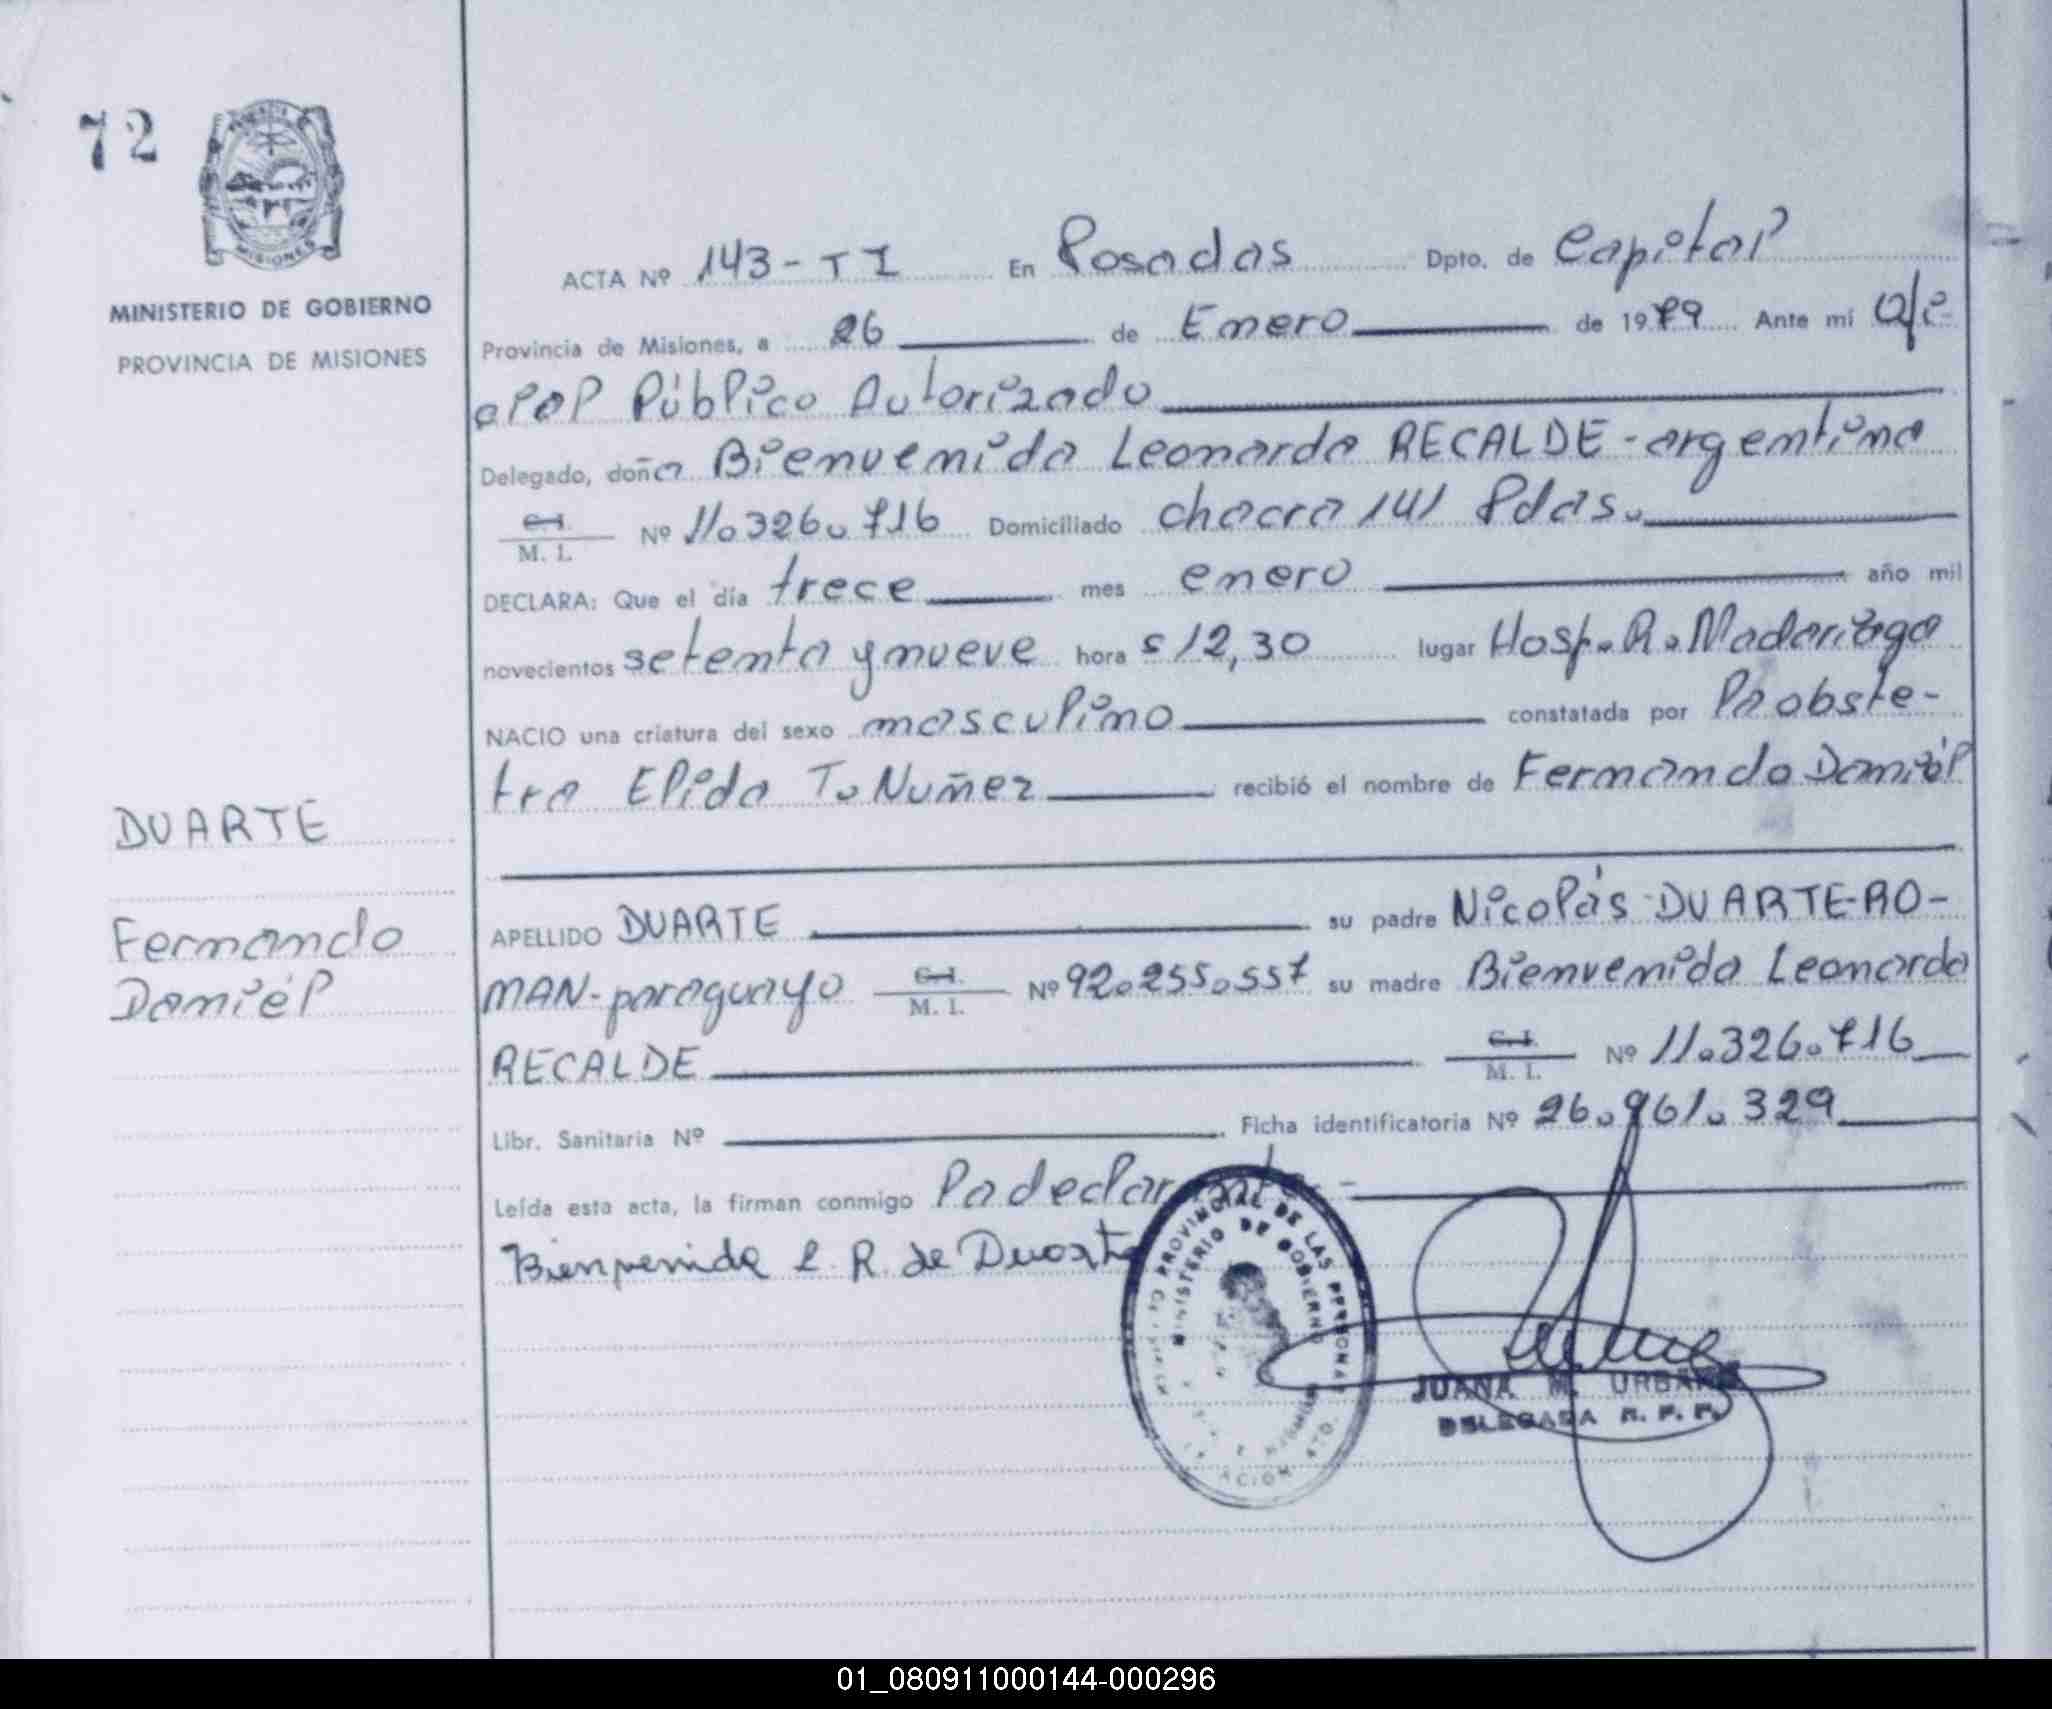 72
MINISTERIO DE GOBIERNO
PROVINCIA DE MISIONES
ACTA Nº 143-TI En Posadas Dpto. de Capital
Provincia de Misiones, a 26 de Enero de 1979 Ante mi Ofi-
cial Público Autorizado
Delegado, doña Bienvenida Leonarda RECALDE-argentina
C.I. M. I. Nº 11.326.716 Domiciliado chacra 141 Pdas.
DECLARA: Que el día trece mes enero año mil
novecientos setenta y nueve hora s 12,30 lugar Hosp. R. Madariaga
NACIO una criatura del sexo masculino constatada por la obste-
tra Elida T. Nuñez recibió el nombre de Fernando Daniél
DUARTE
Fernando
Daniél
APELLIDO DUARTE su padre Nicolás DUARTE-RO-
MAN-paraguayo C.I. M. I. Nº 92.255.557 su madre Bienvenida Leonarda
RECALDE C.I. M. I. Nº 11.326.716
Libr. Sanitaria Nº Ficha identificatoria Nº 26.961.329
Leída esta acta, la firman conmigo la declarante.-
Bienvenida L. R. de Duarte
PROVINCIAL DE LAS PERSONAS
MINISTERIO DE GOBIERNO
JUANA M.
DELEGADA R. P. P.
01_080911000144-000296